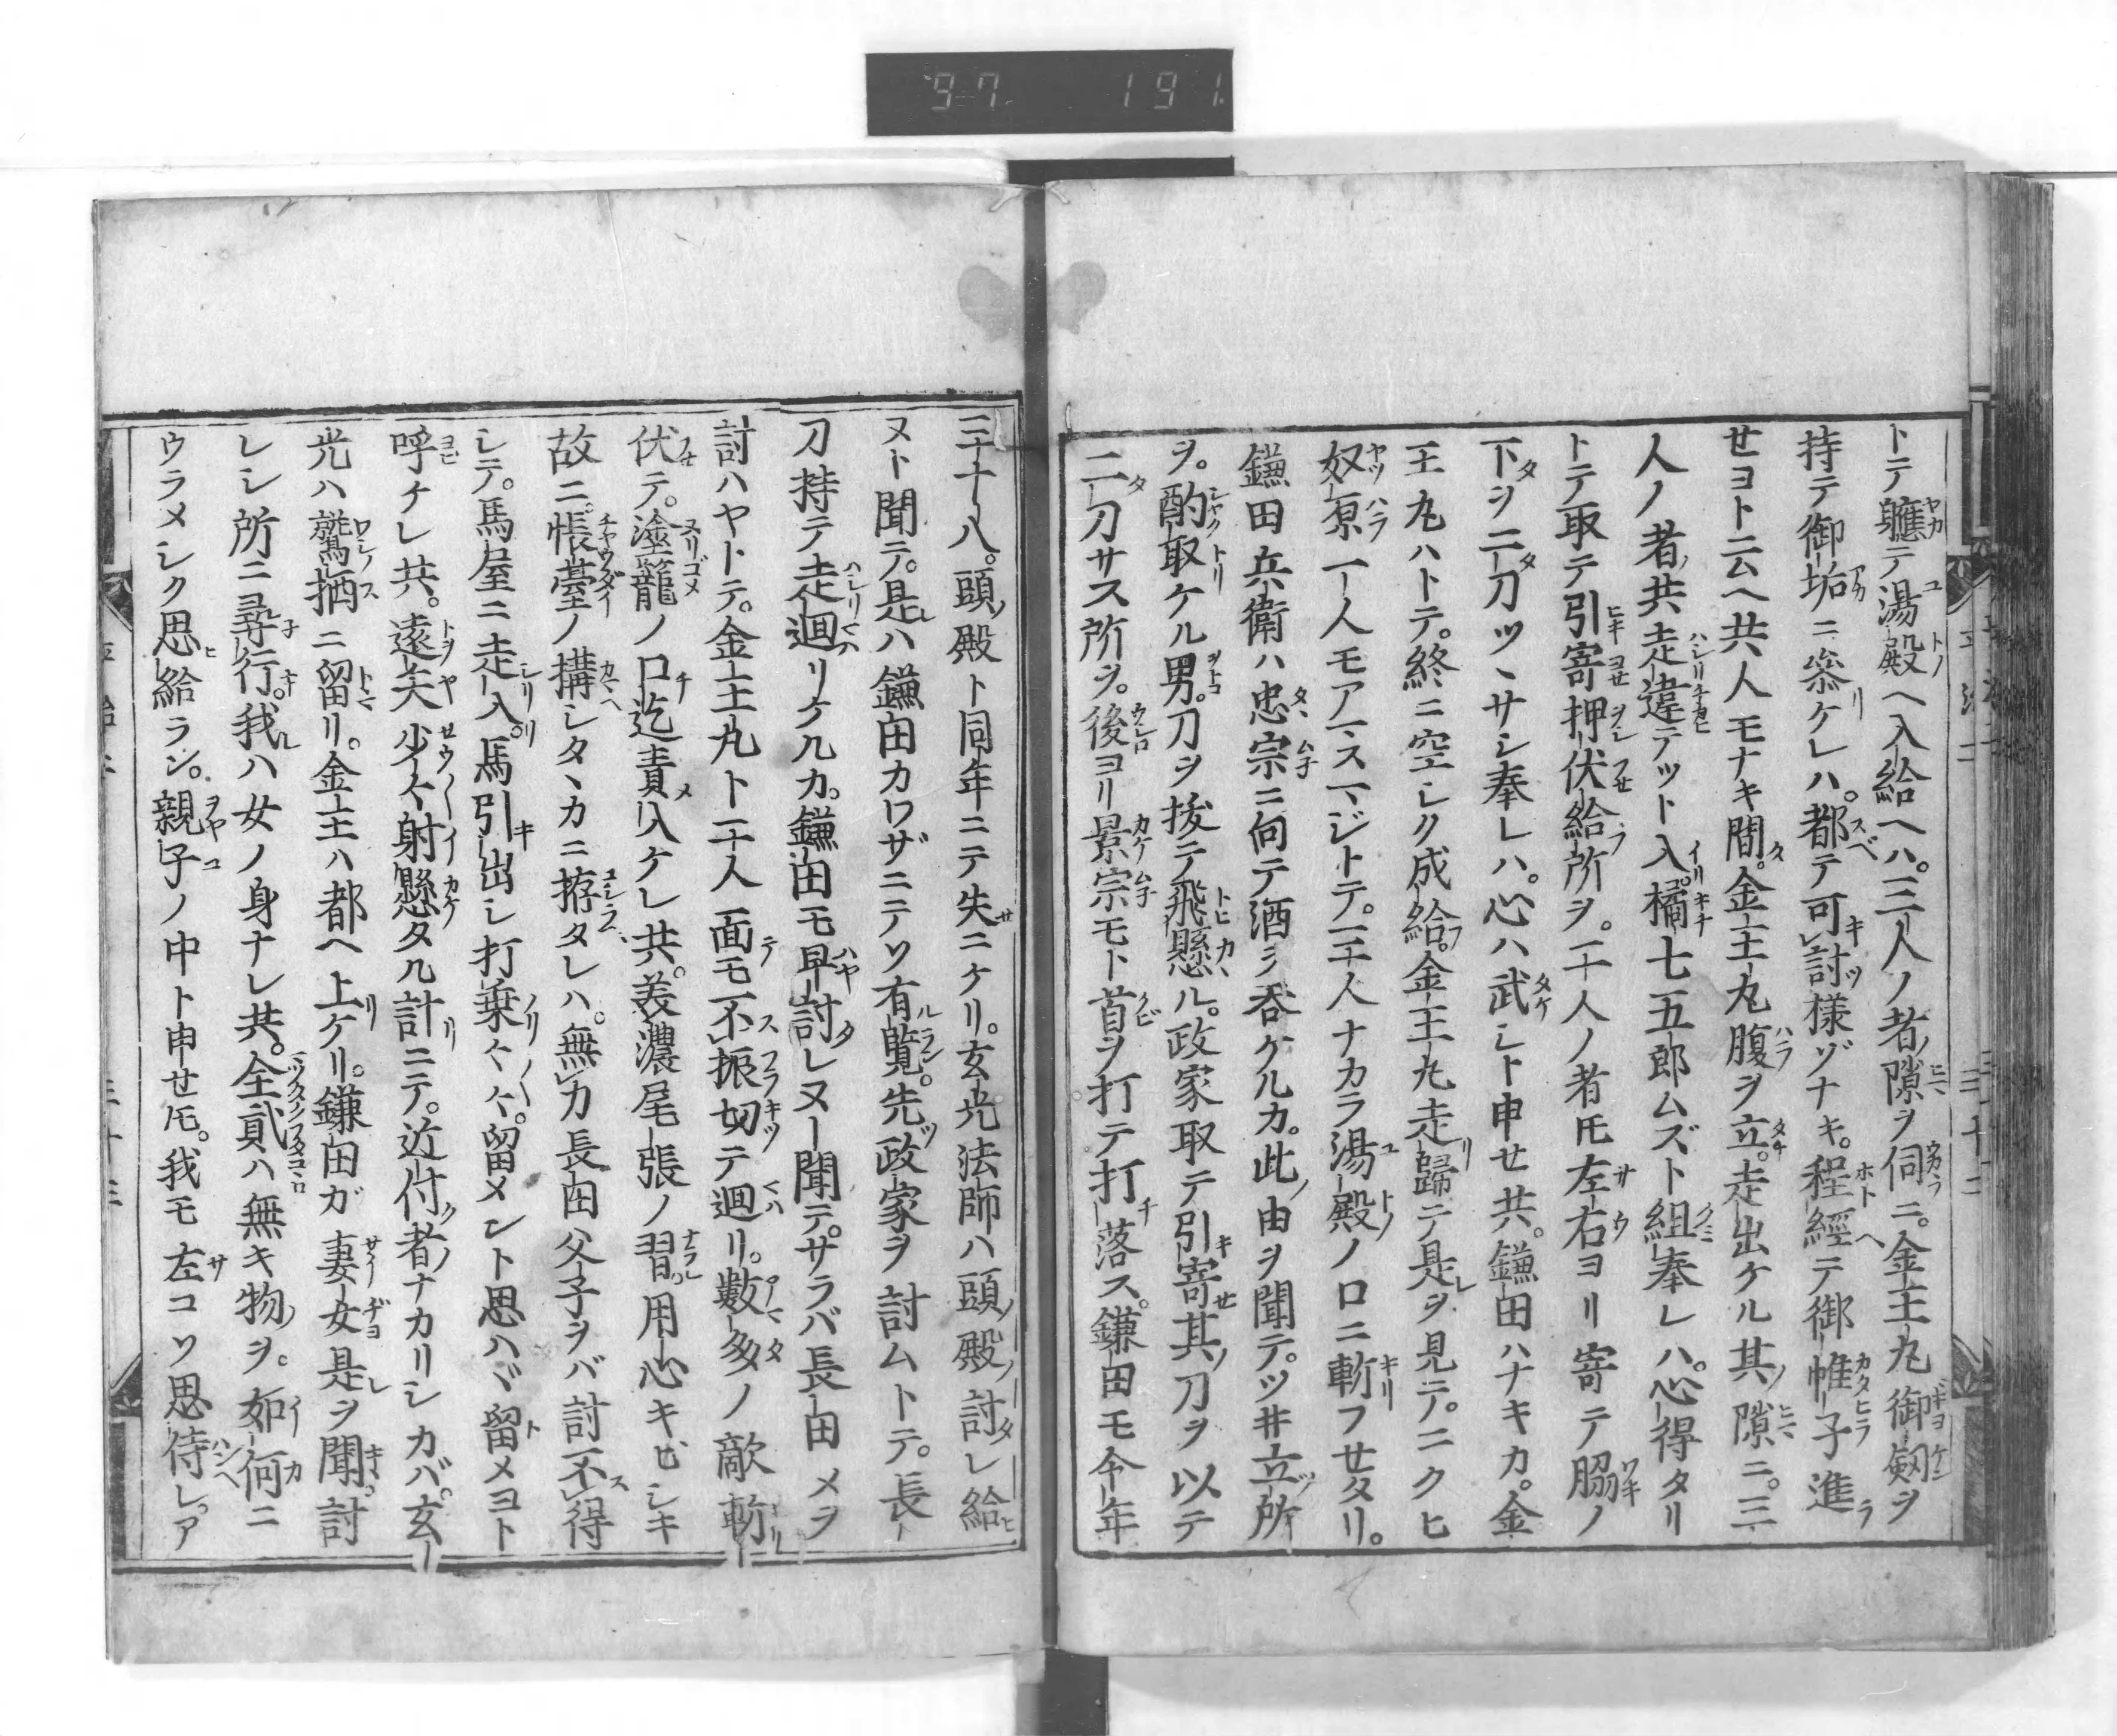 トテ軈テ湯殿ヘ入給ヘハ。三人ノ者隙ヲ伺ニ。金王丸御劔ヲ
持テ御垢ニ參ケレハ。都テ可討様ゾナキ。程經テ御帷子進
セヨト云ヘ共人モナキ間。金王丸腹ヲ立。走出ケル其隙ニ。三
人ノ者共走違テツト入。橘七五郎ムズト組奉レハ。心得タリ
トテ取テ引寄押伏給所ヲ。二人ノ者𪜈左右ヨリ寄テ脇ノ
下ヲ二刀ツヽサシ奉レハ。心ハ武シト申セ共。鎌田ハナキカ。金
王丸ハトテ。終ニ空シク成給。金王丸走歸テ是ヲ見テ。ニクヒ
奴原一人モアマスマジトテ。三人ナカラ湯殿ノ口ニ斬フセタリ。
鎌田兵衛ハ忠宗ニ向テ酒ヲ呑ケルカ。此由ヲ聞テ。ツ井立所
ヲ。酌取ケル男。刀ヲ拔テ飛懸ル。政家取テ引寄其刀ヲ以テ
二刀サス所ヲ。後ヨリ景宗モト首ヲ打テ打落ス。鎌田モ今年
三十八。頭殿ト同年ニテ失ニケリ。玄光法師ハ頭殿討レ給
ヌト聞テ。是ハ鎌田カワザニテソ有覧。先政家ヲ討ムトテ。長
刀持テ走廻リケルカ。鎌田モ早討レヌト聞テ。サラバ長田メヲ
討ハヤトテ。金王丸ト二人面モ不振切テ廻リ。數多ノ敵斬
伏テ。塗籠ノ口迄責入ケレ共。美濃尾張ノ習。用心キビシキ
故ニ。帳臺ノ構シタヽカニ拵タレハ。無力長田父子ヲバ討不得
シテ。馬屋ニ走入。馬引出シ打乘々々。留メント思ハヾ留メヨト
呼ケレ共。遠矢少々射懸タル計ニテ。近付者ナカリシカバ。玄
光ハ鷲栖ニ留リ。金王ハ都ヘ上ケリ。鎌田ガ妻女是ヲ聞。討
レシ所ニ尋行。我ハ女ノ身ナレ共。全貳ハ無キ物ヲ。如何ニ
ウラメシク思給ラン。親子ノ中ト申セ𪜈。我モ左コソ思侍レ。ア